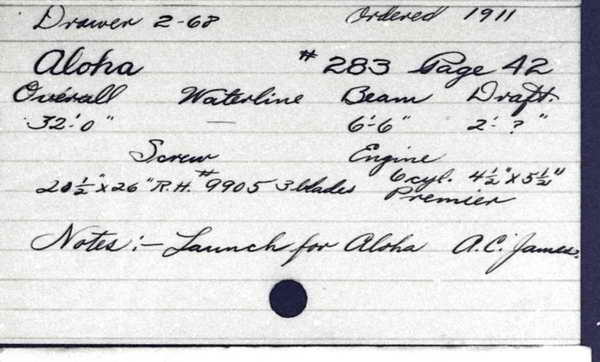 Drawer 2-68 Ordered 1911
Aloha #283 Page 42
Overall Waterline Beam Draft.
32'-0" — 6'-6" 2'-?"
Screw Engine
20½" x 26" R.H. #9905 3 blades 6 cyl. 4½" x 5½"
Premier
Notes:- Launch for Aloha A.C. James.